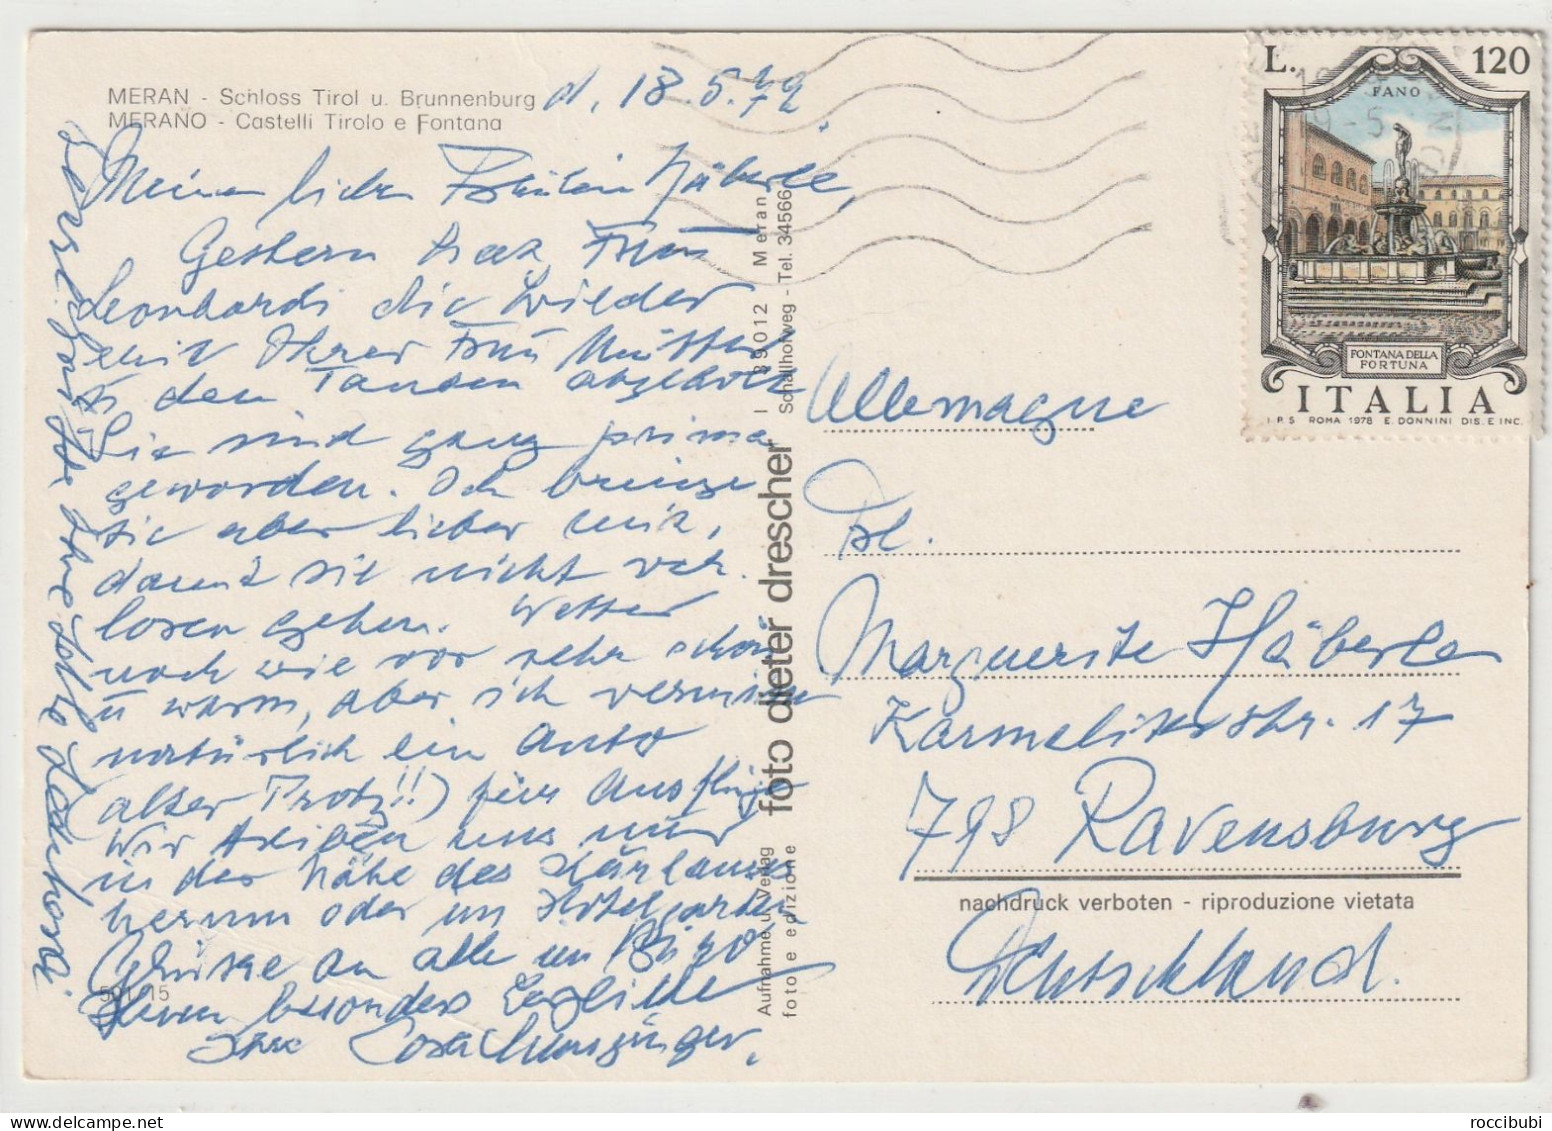 MERAN - Schloss Tirol u. Brunnenburg
MERANO - Castelli Tirolo e Fontana
d. 18.5.79.
Meine liebe Fräulein Häberle,
Gestern hat Frau
Leonhardi die Bilder
mit Ihrer Frau Mutter
u den Tanten abgeholt
Sie sind ganz prima
geworden. Ich bringe
sie aber lieber mit,
damit sie nicht ver-
loren gehen. Wetter
noch wie vor sehr schön
u warm, aber ich vermisse
natürlich ein Auto
(alter Protz!!) für Ausflüge
Wir treiben uns nur
in der Nähe des Kurhauses
herum oder im Hotelgarten
Grüsse an alle im Büro
Ihnen besonders herzliche
Ihre
501/15
Aufnahme u. Verlag
foto e edizione
foto dieter drescher
I 39012 Meran
Schallhofweg - Tel. 34566
L. 120
FANO
FONTANA DELLA
FORTUNA
ITALIA
I.P.S. ROMA 1978 E. DONNINI DIS. E INC.
Allemagne
Frl.
Marguerite Häberle
Karmeliterstr. 17
798 Ravensburg
nachdruck verboten - riproduzione vietata
Deutschland.
roccibubi